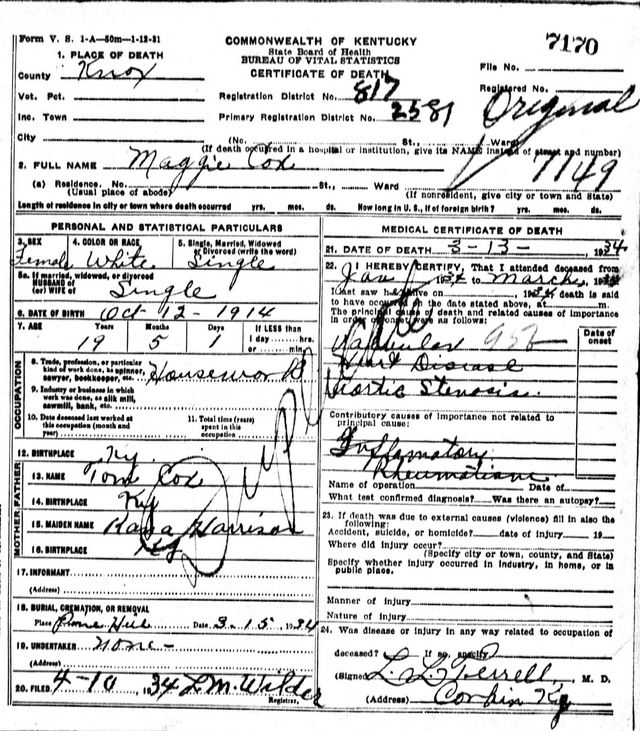 Form V. S. 1-A—50m—1-12-31
COMMONWEALTH OF KENTUCKY
State Board of Health
BUREAU OF VITAL STATISTICS
CERTIFICATE OF DEATH
7170
File No.
Registered No.
Original
7149
1. PLACE OF DEATH
County Knox
Vot. Pct.
Inc. Town
City
Registration District No. 817
Primary Registration District No. 2581
(No. St., Ward)
(If death occurred in a hospital or institution, give its NAME instead of street and number)
2. FULL NAME Maggie Cox
(a) Residence, No. St., Ward
(Usual place of abode) (If nonresident, give city or town and State)
Length of residence in city or town where death occurred yrs. mos. ds. How long in U. S., if of foreign birth? yrs. mos. ds.
PERSONAL AND STATISTICAL PARTICULARS
3. SEX 4. COLOR OR RACE 5. Single, Married, Widowed
or Divorced (write the word)
Female White Single
5a. If married, widowed, or divorced
HUSBAND of
(or) WIFE of Single
6. DATE OF BIRTH Oct-12-1914
7. AGE Years Months Days If LESS than
1 day hrs.
or min.
19 5 1
OCCUPATION
8. Trade, profession, or particular
kind of work done, as spinner,
sawyer, bookkeeper, etc. Housework
9. Industry or business in which
work was done, as silk mill,
sawmill, bank, etc.
10. Date deceased last worked at
this occupation (month and
year)
11. Total time (years)
spent in this
occupation
12. BIRTHPLACE Ky
MOTHER FATHER
13. NAME Tom Cox
14. BIRTHPLACE Ky
15. MAIDEN NAME Harrison
16. BIRTHPLACE Ky
17. INFORMANT
(Address)
18. BURIAL, CREMATION, OR REMOVAL
Place Date 3-15, 1934
19. UNDERTAKER None-
(Address)
20. FILED 4-10 1934 L. M. Wilder
Registrar.
MEDICAL CERTIFICATE OF DEATH
21. DATE OF DEATH 3-13- 1934
22. I HEREBY CERTIFY, That I attended deceased from
Jan 1934 to March, 1934
I last saw h alive on 1934 death is said
to have occurred on the date stated above, at m.
The principal cause of death and related causes of importance
in order of onset were as follows:
Date of
onset
Valvular
Heart Disease
Aortic Stenosis.
Contributory causes of importance not related to
principal cause:
Inflamatory
Rheumatism
Name of operation Date of
What test confirmed diagnosis? Was there an autopsy?
23. If death was due to external causes (violence) fill in also the
following:
Accident, suicide, or homicide? date of injury 19
Where did injury occur?
(Specify city or town, county, and State)
Specify whether injury occurred in industry, in home, or in
public place.
Manner of injury
Nature of injury
24. Was disease or injury in any way related to occupation of
deceased? If so, specify
(Signed) L. L. Terrell, M. D.
(Address) Corbin Ky